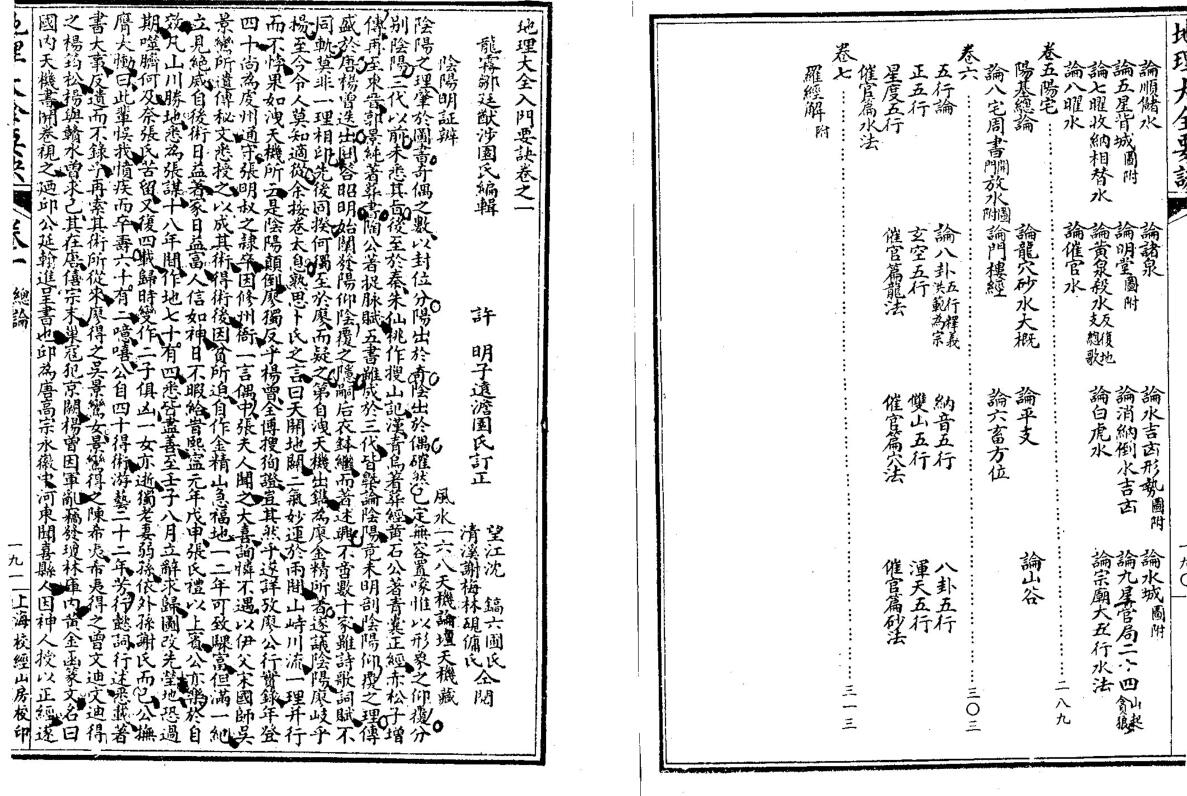 地理大全要訣
論順儲水
論諸泉
論水吉凶形勢圖附
論水城圖附
論五星背城圖附
論明堂圖附
論消納倒水吉凶
論九星管局二十四山起貪狼
論七曜收納相替水
論黃泉殺水反復地支總歌
論白虎水
論宗廟大五行水法
論八曜水
論催官水
卷五陽宅 二八九
陽基總論
論龍穴砂水大概
論平支
論山谷
論八宅周書開門放水圖附
論門樓經
論六畜方位
卷六 三〇三
五行論
論八卦五行釋義洪範為宗
納音五行
八卦五行
正五行
玄空五行
雙山五行
渾天五行
星度五行
催官篇龍法
催官篇穴法
催官篇砂法
催官篇水法
卷七 三一三
羅經解附
一九〇
地理大全入門要訣卷之一
龍霧鄒廷猷沙園氏編輯
許明子遠澹園氏訂正
望江沈鎬六圃氏
清溪謝梅林硯傭氏
仝閱
陰陽明証辨
風水一六八天機論壇天機藏
陰陽之理肇於圖書奇偶之數以封位分陽出於奇陰出於偶確然已定無容置喙惟以形象之仰覆分
別陰陽三代以前未悉其旨後至於秦朱仙桃作搜山記漢青烏著葬經黃石公著青囊正經赤松子增
傳再至東晋郭景純著葬書陶公著捉脉賦五書雖成於三代皆槩論陰陽竟未明剖陰陽仰覆之理傳
盛於唐楊曾迭出閉容昭明始闡發陽仰陰覆之隱嗣后衣鉢繼而著述興不啻數十家雖詩歌詞賦不
同軌莫非一理相印先後同揆何獨至於廖而疑之第自洩天機出鐫為廖金精所著遂議陰陽廖岐乎
楊至今令人莫知適從余接卷太息熟思卜氏之言曰天開地闢二氣妙運於兩間山峙川流一理并行
而不悖果如洩天機所云是陰陽顛倒廖獨反乎楊曾全傅搜狗證豈其然乎遂詳攷廖公行實錄年登
四十尚為虔州通守張明叔之隸卒因修州衙一言偶中張夫人聞之大喜詢憐不遇以伊父宋國師吳
景鸞所遺傳秘文悉授之以成其術得術後因貧所迫自作金精山急福地一二年可致驟富但滿一紀
立見絕威自後術日益著家日益富人信如神日不暇給當熙寧元年戊申張氏禮以上賓公亦樂於自
效凡山川勝地悉為張謀十八年間作地七十有四悉皆盡善至壬子八月立辭求歸圖改先塋地恐過
期噬臍何及奈張氏苦留又復四載歸時變作二子俱凶一女亦逝獨老妻弱孫依外孫謝氏而已公撫
膺大慟曰此輩悞我憤疾而卒壽六十有二噫嘻公自四十得術游藝二十二年芳行懿詞行述悉載著
書大事反遺而不錄乎再索其術所從來廖得之吳景鸞女景鸞得之陳希夷希夷得之曾文迪文迪得
之楊筠松楊與贛水曾求己其在唐僖宗末巢寇犯京闕楊曾因軍亂竊發瓊林庫內黃金函篆文名曰
國內天機書開卷視之廼邱公延翰進呈書也邱為唐高宗永徽中河東聞喜縣人因神人授以正經遂
卷一 總論
一九一
上海校經山房校印